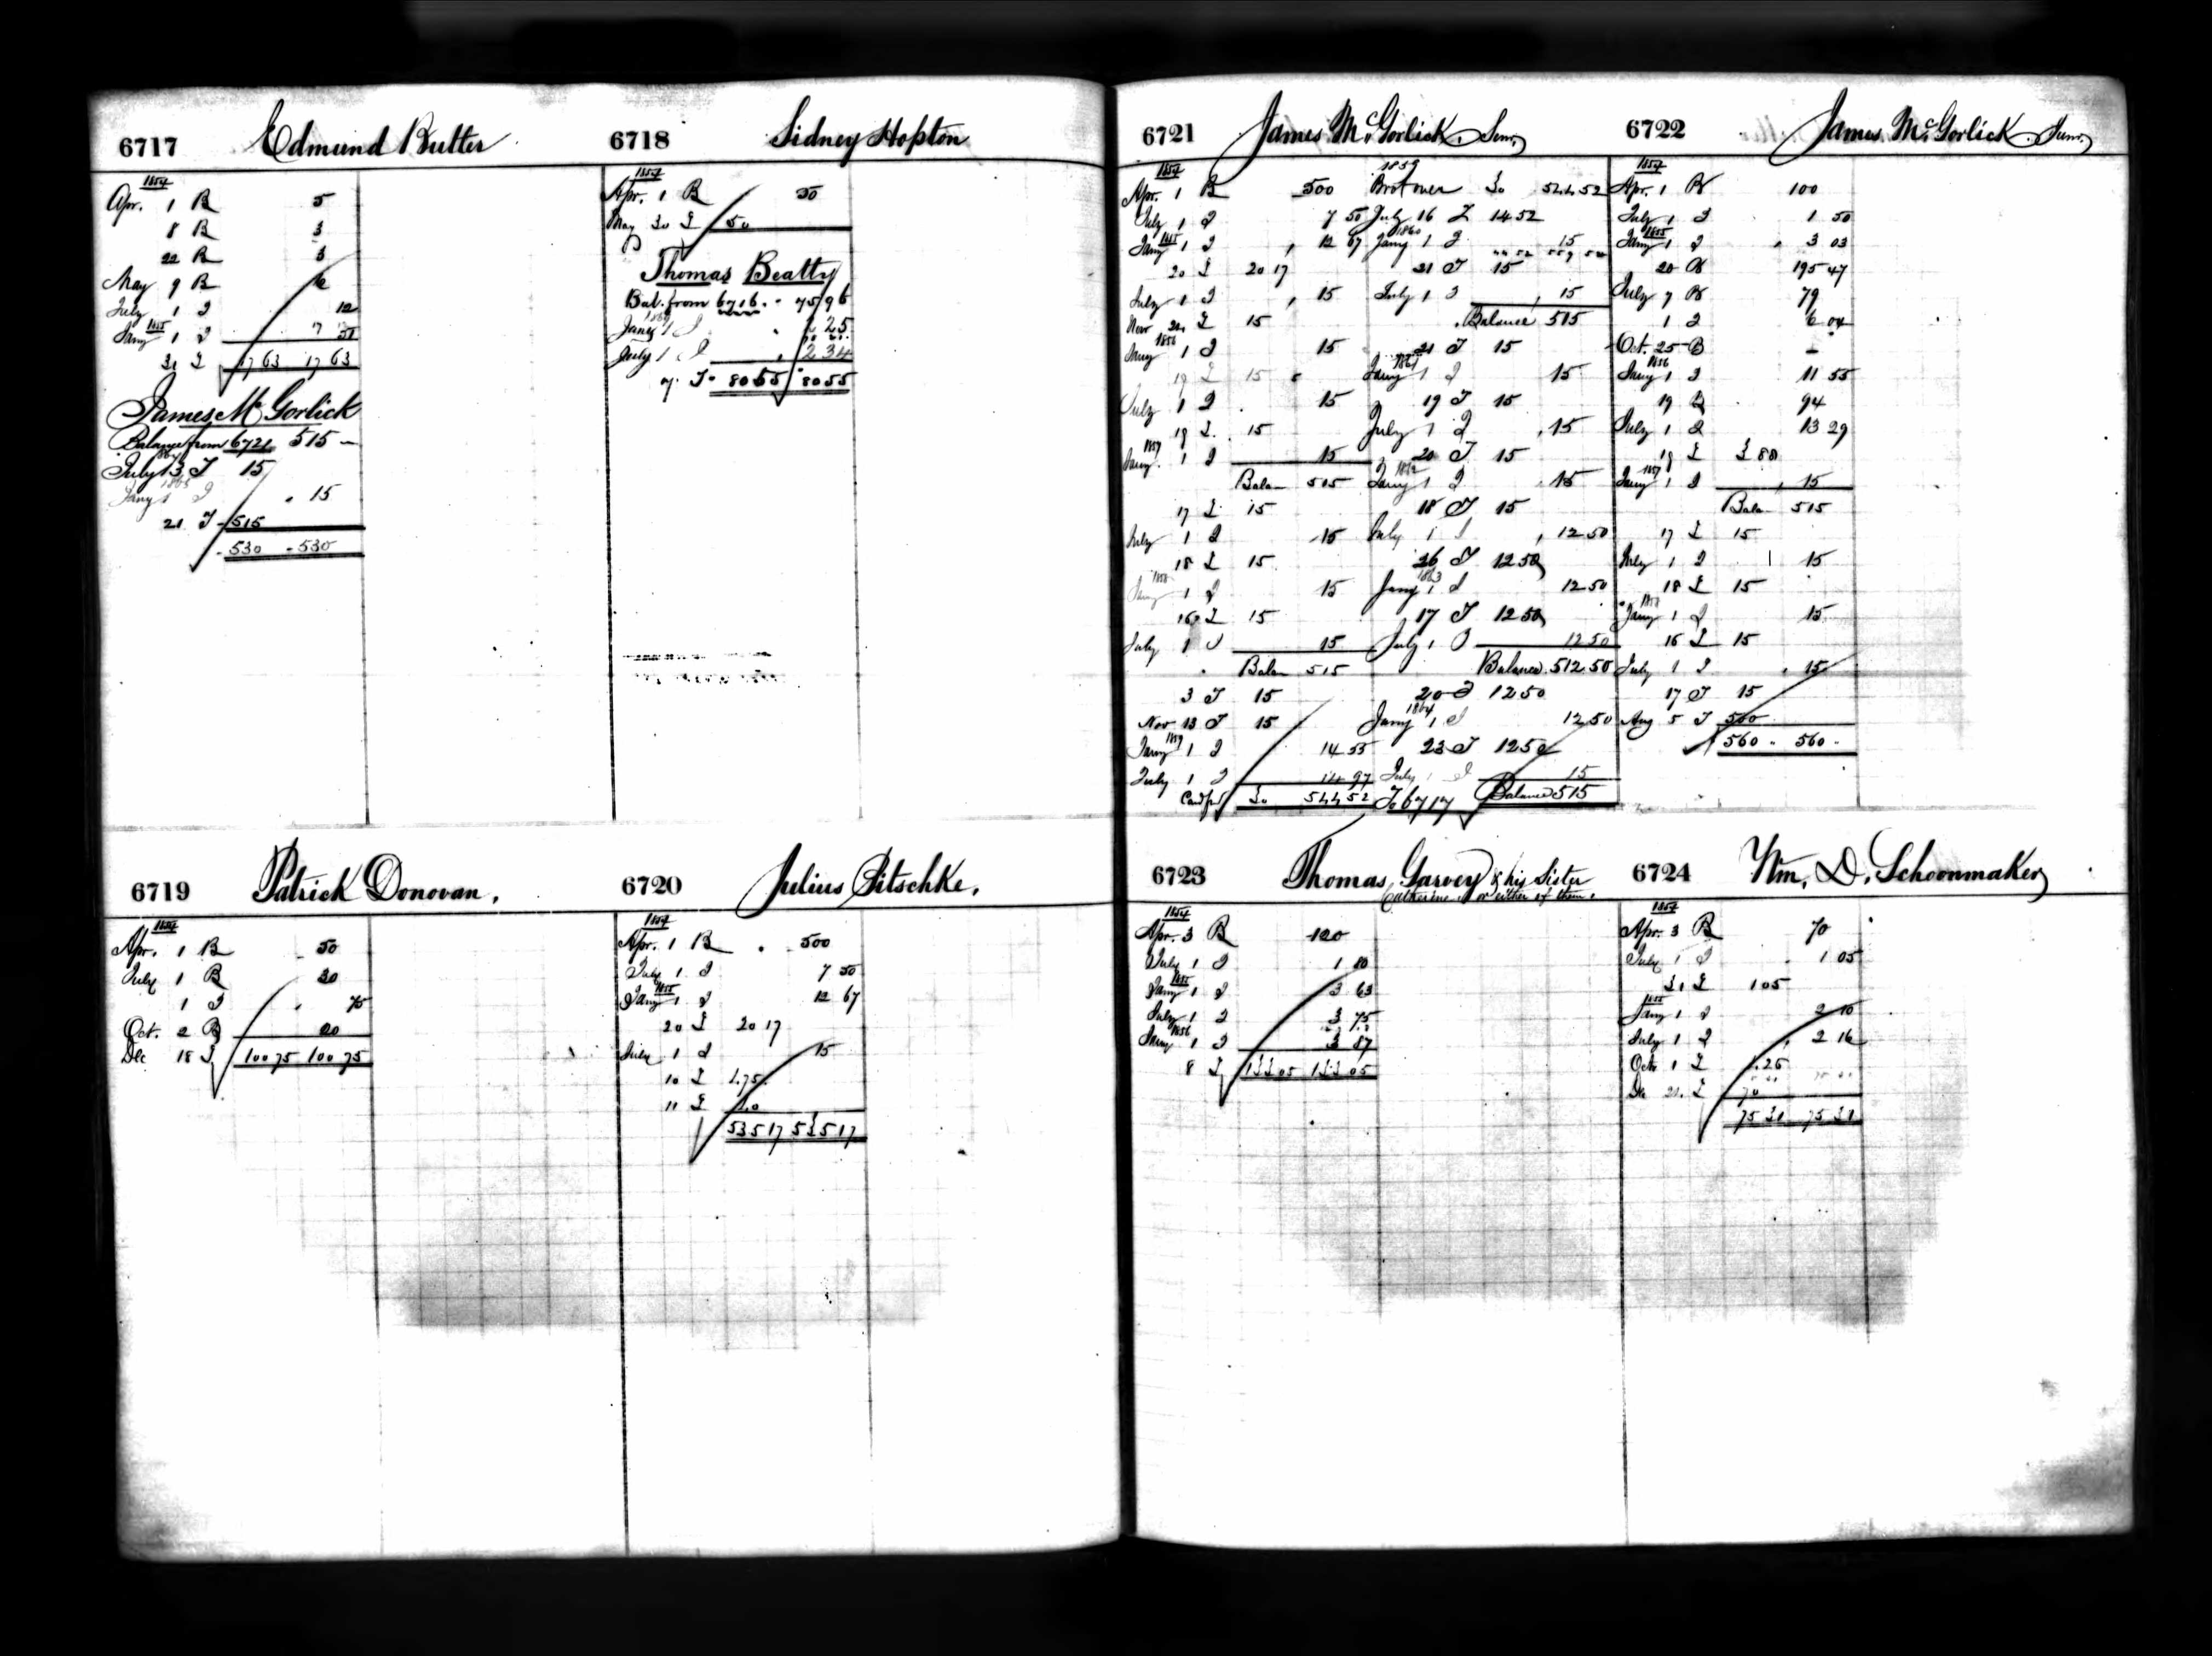 6717 Edmund Butter
1854
Apr. 1 B 5
8 B 3
22 B 3
May 9 B 6
July 1 I 12
1855
Jany 1 I
31 I 17 63 17 63
James Mc Gorlick
Balance from 6721 515 —
1864
July 13 T 15
1865
Jany 1 I 15
21 T 515
530 530
6718 Sidney Hopton
1854
Apr. 1 B 50
May 30 I 50
Thomas Beatty
Bal. from 6716 75 96
Jany 1 I 2 25
July 1 I 2 34
7 T 80 55 80 55
6721 James Mc. Gorlick. Senr.
1854
Apr. 1 B 500
July 1 I 7 50
1855
Jany 1 I 12 67
20 I 20 17
July 1 I 15
Nov 20 I 15
1856
Jany 1 I 15
19 I 15
July 1 I 15
19 I 15
1857
Jany 1 I 15
Balan 515
17 I 15
July 1 I 15
18 I 15
1858
Jany 1 I 15
16 I 15
July 1 I 15
Balan 515
3 T 15
Nov 13 T 15
1859
Jany 1 I 14 55
July 1 I 14 97
Card fwd 30 544 52
1859
Brot over 30 544 52
July 16 I 14 52
1860
Jany 1 I 15
21 T 15
July 1 I 15
Balance 515
21 T 15
1861
Jany 1 I 15
19 T 15
July 1 I 15
20 T 15
1862
Jany 1 I 15
18 T 15
July 1 I 12 50
26 T 12 50
1863
Jany 1 I 12 50
17 T 12 50
July 1 I 12 50
Balance 512 50
20 T 12 50
1864
Jany 1 I 12 50
23 T 12 50
July 1 I 15
To 6717 Balance 515
6722 James Mc. Gorlick. Junr.
1854
Apr. 1 B 100
July 1 I 1 50
1855
Jany 1 I 3 03
20 B 195 47
July 7 B 79
1 I 6 04
Oct. 25 B
1856
Jany 1 I 11 55
19 B 94
July 1 I 13 29
19 I
1857
Jany 1 I 15
Balan 515
17 I 15
July 1 I 15
18 I 15
1858
Jany 1 I 15
16 I 15
July 1 I 15
17 T 15
Aug 5 T 500
560 560
6719 Patrick Donovan.
1854
Apr. 1 B 50
July 1 B 30
1 I 75
Oct. 2 B 20
Dec 18 I 100 75 100 75
6720 Julius Pitschke.
1854
Apr. 1 B 500
July 1 I 7 50
1855
Jany 1 I 12 67
20 I 20 17
July 1 I 15
10 I 475
11 I 40
535 17 535 17
6723 Thomas Garvey & his Sister
Catherine or either of them.
1854
Apr. 3 B 120
July 1 I 1 80
1855
Jany 1 I 3 63
July 1 I 3 75
1856
Jany 1 I 3 87
8 I 133 05 133 05
6724 Wm. D. Schoonmaker
1854
Apr. 3 B 70
July 1 I 1 05
31 I 1 05
1855
Jany 1 I 2 10
July 1 I 2 16
Oct. 1 I 4 26
De 21. I 70
75 31 75 31